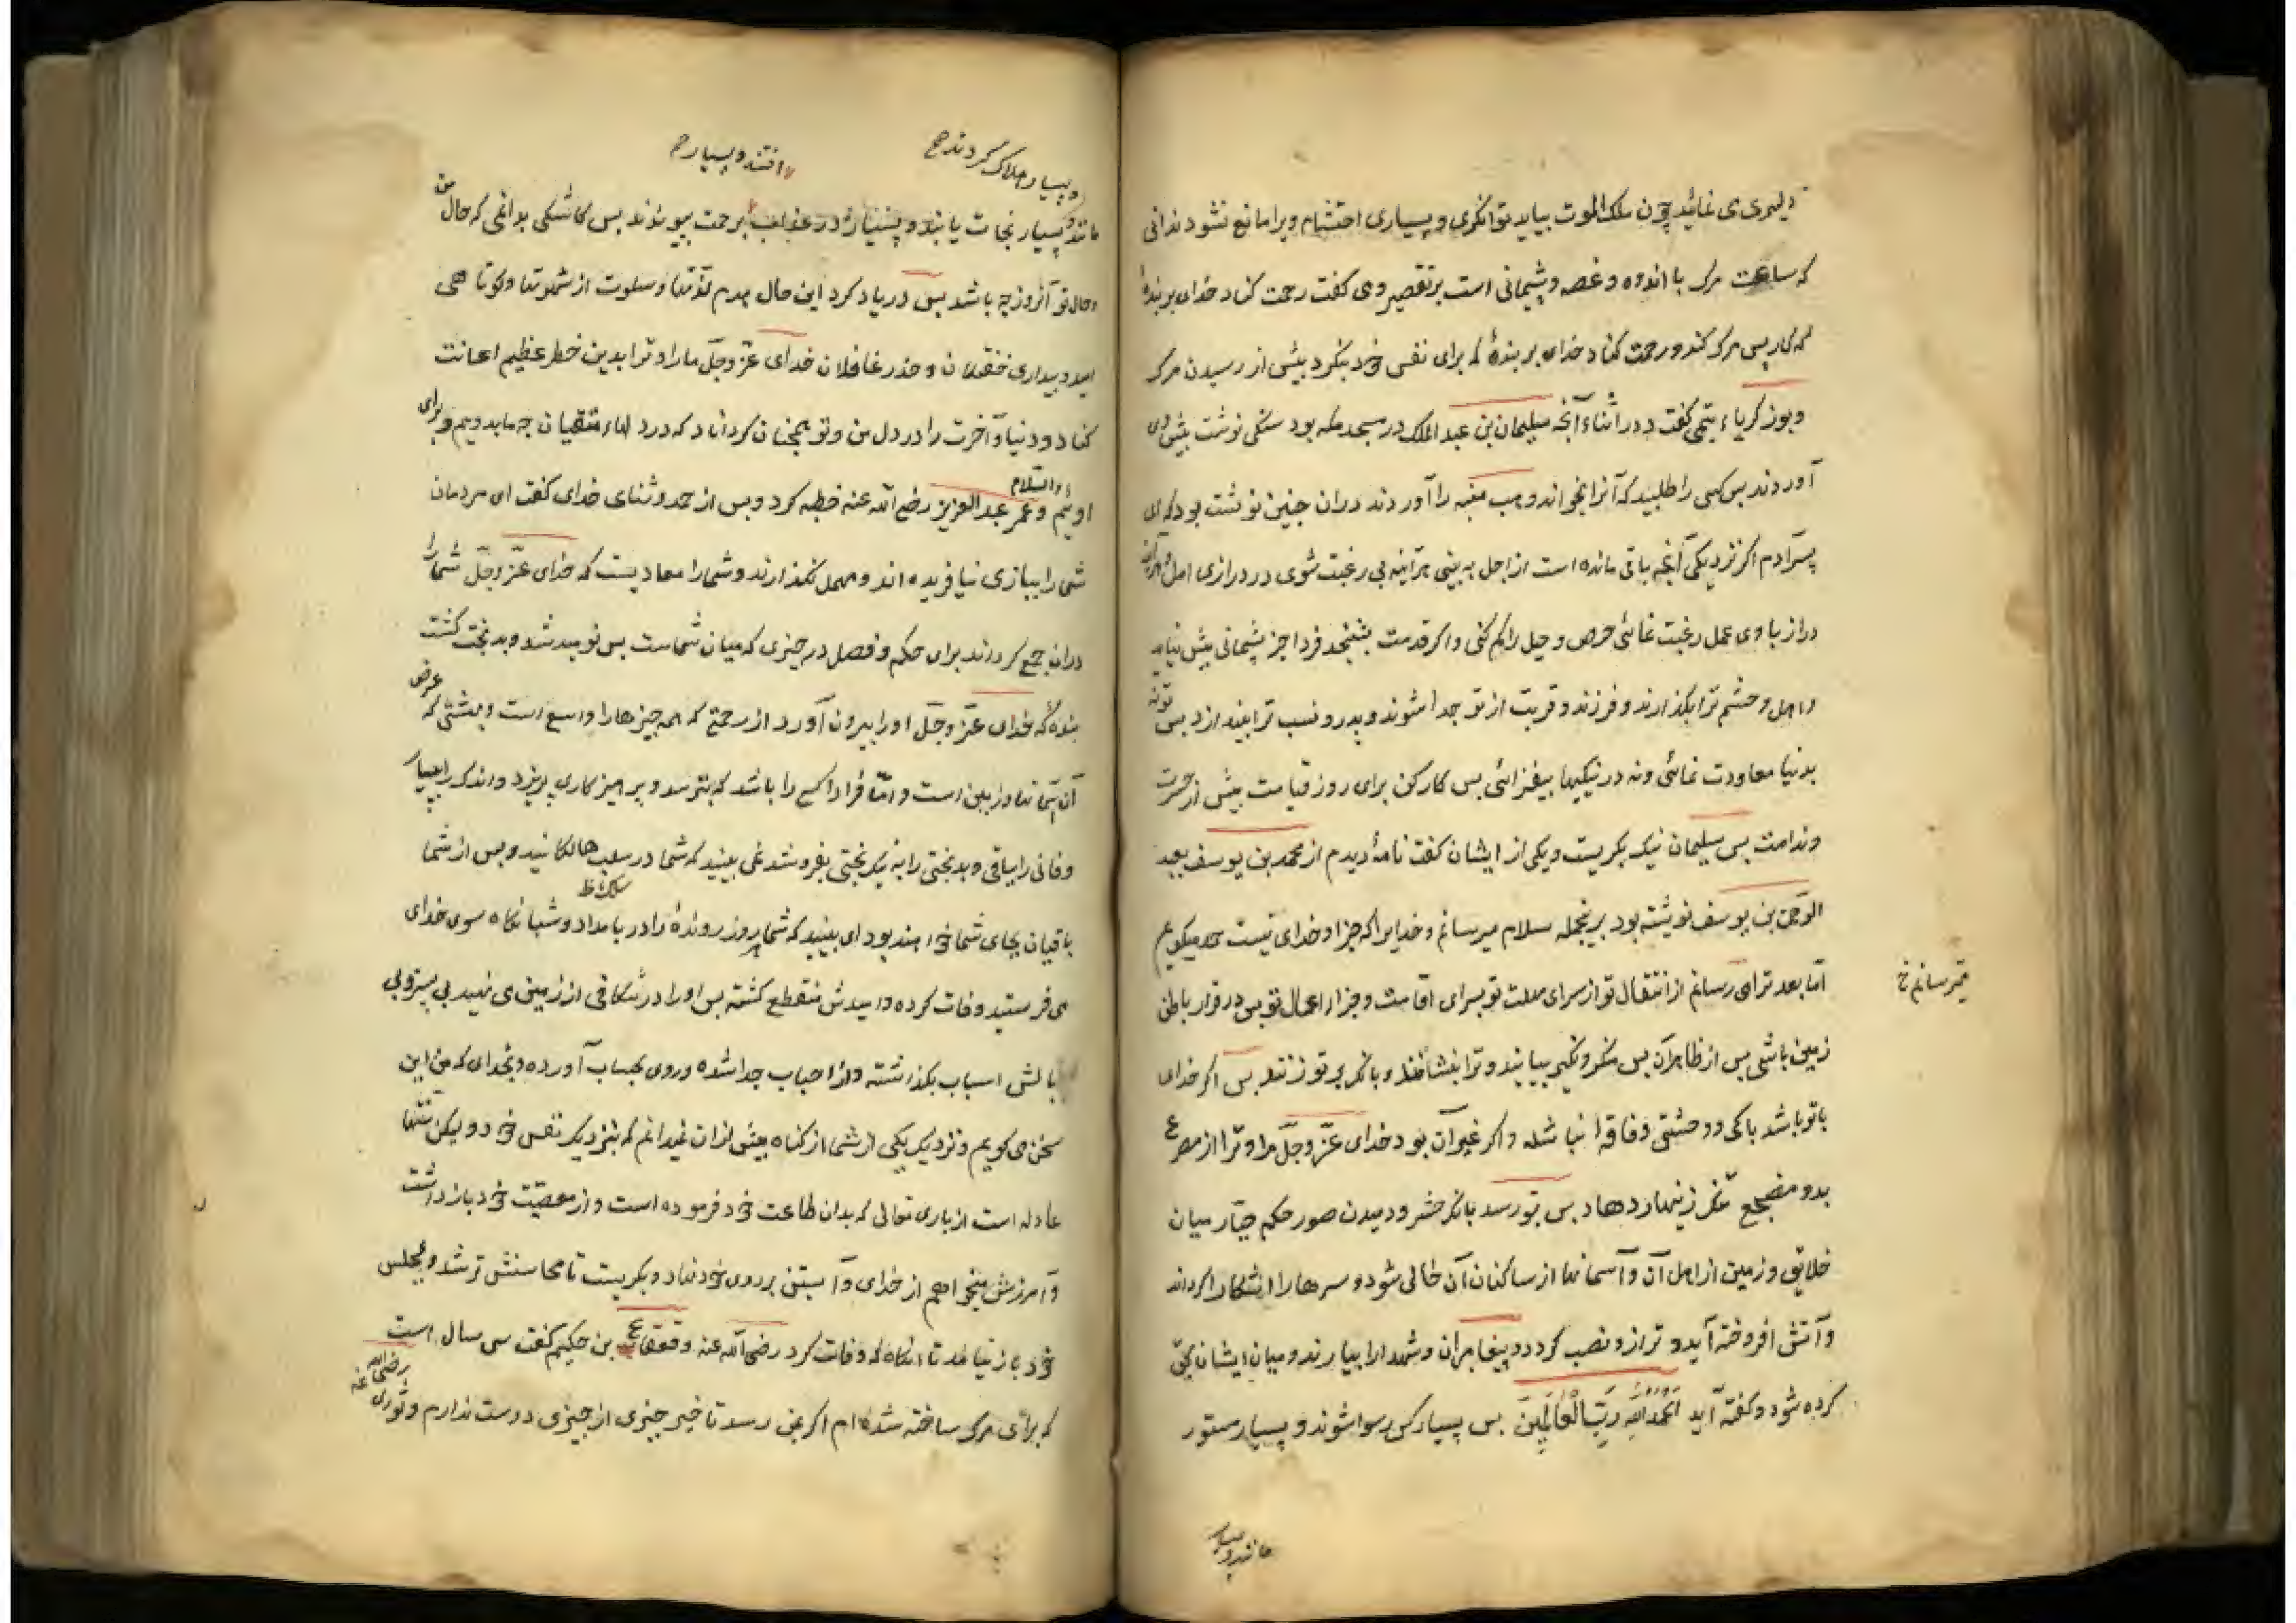 دلیری می نمائید چون ملک الموت بیاید توانکری و بسیاری احتشام ویرا مانع نشود ندانی
که ساعت مرک با اندوه و غصه و پشیمانی است بر تقصیر و می کفت رحمت کناد خدای بر بندهٔ
که کار پس مرک کند و رحمت کناد خدای بر بندهٔ که برای نفس خود بنکرد پیش از رسیدن مرک
و بو زکریاء تیمی کفت در اثناء آنچه سلیمان بن عبد الملک در مسجد مکه بود سنکی نوشت پیش وی
آوردند پس کسی را طلبید که آنرا بخواند وهب منبه را آوردند دران چنین نوشت بود که ای
پسر آدم اکر نزدیکی آنچه باقی مانده است از اجل به بینی هر آینه بی رغبت شوی در درازی امل
دراز با وی عمل رغبت نمائی حرص و حیل را کم کنی و اکر قدمت بلغزد فردا جز پشیمانی پیش نیاید
و اهل و حشم ترا بکذارند و فرزند و قریب از تو جدا شوند و پدر و نسب ترا بیند از د پس تو نه
بدنیا معاودت نمائی و نه در نیکیها بیفزائی پس کار کن برای روز قیامت پیش از حسرت
و ندامت پس سلیمان نیک بکریست و یکی از ایشان کفت نامهٔ دیدم از محمد بن یوسف بعبد
الرحمن بن یوسف نوشته بود برینجمله سلام میرسانم و خدایرا که جز او خدای نیست حمد میکویم
اما بعد ترا می رسانم از انتقال تو از سرای مهلت تو بسرای اقامت و جزاء اعمال تو پس در قرار باطن
میترسانم خ
زمین باشی پس از ظاهر آن پس منکر و نکیر بیایند و ترا بنشانند و بانک بر تو زنند پس اکر خدای
با تو باشد باکی و وحشتی و فاقه نباشد و اکر غیر آن بود خدای عز و جل مرا و ترا از مصرع
بد و مضجع تنک زینهار دهاد پس بتو رسد بانک حشر و دمیدن صور حکم جبار میان
خلایق و زمین از اهل آن و آسمانها از ساکنان آن خالی شود و سرها را اشکارا کرداند
و آتش افروخته آید و ترازو نصب کردد و پیغامبران و شهدا را بیارند و میان ایشان بحق
کرده شود و کفته آید الحمد لله رب العالمین پس بسیار کس رسوا شوند و بسیار مستور
مانند و بسیار
و بسیار هلاک کردند صح
افتند و بسیار صح
مانند و بسیار نجات یابند و بسیار در عذاب برحمت بپیوندند پس کاشکی بدانمی که حال من
و حال تو آنروز چه باشد پس در یاد کرد این حال هدم لذتها و سلوت از شهوتها و کوتاهی
امید و بیداری خفتکان و حذر غافلان خدای عز و جل ما را و ترا بدین خطر عظیم اعانت
کناد و دنیا و آخرت را در دل من و تو همچنان کرداناد که در دلهاء متقیان چه ما بدوییم و برای
اوییم والسلام و عمر عبد العزیز رضی الله عنه خطبه کرد و پس از حمد و ثنای خدای کفت ای مردمان
شما را ببازی نیافریده اند و مهمل نکذارند و شما را معادیست که خدای عز و جل شما را
دران جمع کرداند برای حکم و فصل در چیزی که میان شماست پس نومید شد و بدبخت کشت
بندهٔ که خدای عز و جل او را بیرون آورد از رحمتی که همه چیزها را واسع است و بهشتی که عرض
آن آسمانها و زمین است و امان فردا کسی را باشد که بترسد و پرهیزکاری پزیرد و اندک را ببسیار
و فانی را بباقی و بدبختی را به نیکبختی بفروشد نمی بینید که شما در سلب هالکانید و پس از شما
باقیان بجای شما خواهند بود ای نبینید که شما هر روز روندهٔ را در بامداد و شبانکاه سوی خدای
می فرستید وفات کرده و امیدش منقطع کشته پس او را در شکافی از زمین می نهید بی بستر و بی
بالش اسباب بکذاشته و از احباب جدا شده و روی بحساب آورده و بخدای که من این
سخن می کویم و نزدیک یکی از شما از کناه بیش ازان نمیدانم که بنزدیک نفس خود و لیکن سنتها
عادله است از باری تعالی که بدان طاعت خود فرموده است و از معصیت خود باز داشت
و آمرزش میخواهم از خدای و آستین بر روی خود نهاد و بکریست تا محاسنش تر شد و بمجلس
خود باز نیامد تا انکاه که وفات کرد رضی الله عنه و قعقاع بن حکیم کفت سی سال است
که برای مرک ساخته شده ام اکر بمن رسد تاخیر چیزی از چیزی دوست ندارم و ثوری رضی الله عنه